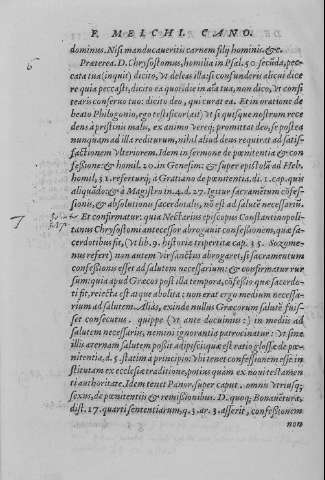 F. MELCHI. CANO.
dominus. Nisi manducaueritis carnem filij hominis. &c.
6
Præterea. D. Chrysostomus, homilia in Psal. 50. secūda, pec-
cata tua (inquit) dicito, vt deleas illa: si confunderis alicui dice
re quia peccasti, dicito ea quotidie in aīa tua, non dico, vt confi
tearis conseruo tuo: dicito deo, qui curat ea. Et in oratione de
beato Philogonio, ego testificor (ait) vt si quisque nostrum rece
dens à pristinis malu, ex animo vereq; promittat deo, se postea
nunquam ad illa rediturum, nihil aliud deus requirat ad satis-
factionem vlteriorem. Idem in sermone de pœnitentia & con
fessione: & homil. 20. in Genesim: & super epistolā ad Heb.
homil, 31. refertur q; à Gratiano de pœnitentia. di. 1. cap. quis
aliquādo: & à Magistro in. 4. d. 27. Igitur sacramētum confes-
sionis, & absolutionis sacerdotalis, nō est ad salutē necessariū.
7
Et confirmatur: quia Nectarius episcopus Constantinopoli-
tanus Chrysostomi antecessor abrogauit confessionem, quæ sa-
cerdotibus fit, (vt lib. 9. historiæ tripertitæ cap. 35. Sozome-
nus refert) non autem vir sanctus abrogaret, si sacramentum
confessionis esset ad salutem necessarium: & confirmatur rur
sum: quia apud Græcos post illa tempora, cōfessio quæ sacerdo
ti fit, reiecta est atque abolita: non erat ergo medium necessa-
rium ad salutem. Aliàs, exinde nullus Græcorum salutē fuis-
set consecutus. quippe (vt ante docuimus:) in mediis ad
salutem necessariis, nemini ignorantia patrocinatur: vt sine
illis æternam salutem possit adipisci: quæ est ratio glossæ de pœ-
nitentia, d. 5. statim à principio: vbi tenet confessionem esse in
stitutam ex ecclesiæ traditione, potius quàm ex noui testamen
ti authoritate. Idem tenet Panor. super caput. omnis vtriusq;
sexus, de pœnitentiis & remissionibus. D. quoq; Bonauētura,
dist. 17. quarti sententiarum, q. 3. ar. 3. asserit, confessionem
non